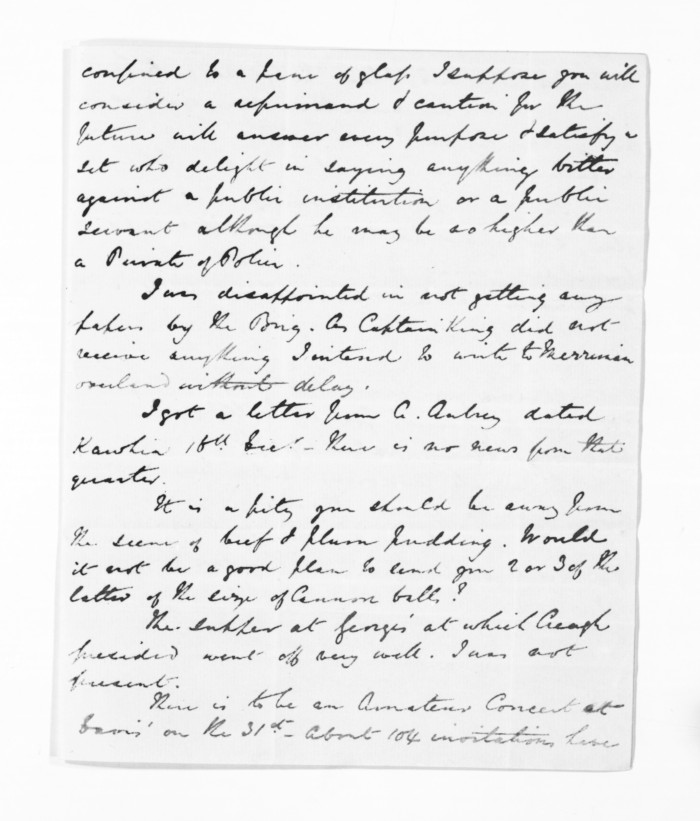 confined to a pane of glass I suppose you will
consider a reprimand & caution for the
future will answer every purpose & satisfy a
set who delight in saying anything bitter
against a public institution or a public
servant although he may be no higher than
a Private of Police.
I was disappointed in not getting any
papers by the Brig. As Captain King did not
receive anything I intend to write to Merriman
overland without delay.
I got a letter from A. Aubrey dated
Kawhia 18th Decr - There is no news from that
quarter.
It is a pity you should be away from
the scene of beef & plum pudding. Would
it not be a good plan to send you 2 or 3 of the
latter of the size of Cannon balls?
The supper at George's at which Creagh
presided went off very well. I was not
present.
There is to be an Amateur Concert at
Davis' on the 31st - About 104 invitations have